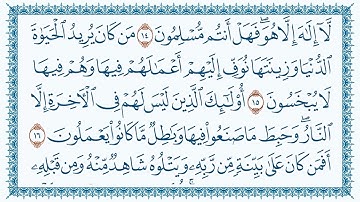 لَّآ إِلَٰهَ إِلَّا هُوَۖ فَهَلْ أَنتُم مُّسْلِمُونَ ١٤ مَن كَانَ يُرِيدُ ٱلْحَيَوٰةَ
ٱلدُّنْيَا وَزِينَتَهَا نُوَفِّ إِلَيْهِمْ أَعْمَٰلَهُمْ فِيهَا وَهُمْ فِيهَا
لَا يُبْخَسُونَ ١٥ أُو۟لَٰٓئِكَ ٱلَّذِينَ لَيْسَ لَهُمْ فِى ٱلْءَاخِرَةِ إِلَّا
ٱلنَّارُۖ وَحَبِطَ مَا صَنَعُوا۟ فِيهَا وَبَٰطِلٌ مَّا كَانُوا۟ يَعْمَلُونَ ١٦
أَفَمَن كَانَ عَلَىٰ بَيِّنَةٍ مِّن رَّبِّهِۦ وَيَتْلُوهُ شَاهِدٌ مِّنْهُ وَمِن قَبْلِهِۦ